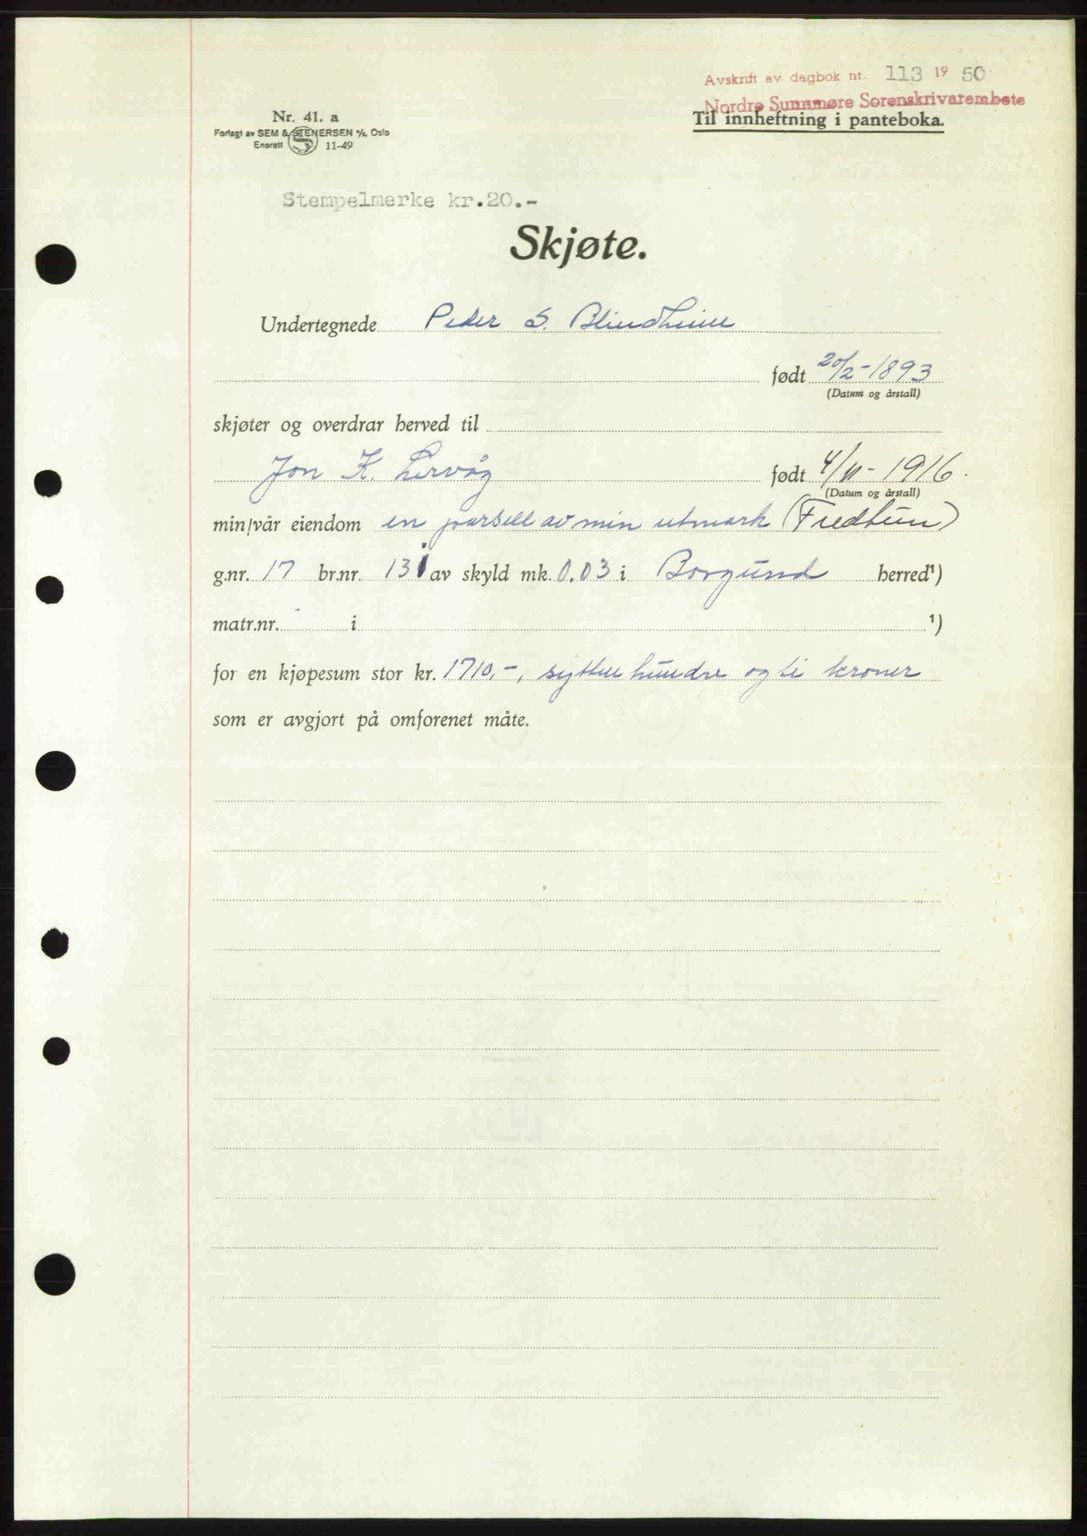 Avskrift av dagbok nr. 113 19 50
Nordre Sunnmøre Sorenskrivarembete
Til innheftning i panteboka.
Nr. 41. a
Forlagt av SEM & STENERSEN A/S, Oslo
Enerett 11-49
Stempelmerke kr.20.-
Skjøte.
Undertegnede Peder S. Blindheim
født 20/2-1893
(Datum og årstall)
skjøter og overdrar herved til
Jon K. Lervåg født 4/11-1916.
(Datum og årstall)
min/vår eiendom en parsell av min utmark (Fredtun)
g.nr. 17 br.nr. 131 av skyld mk. 0.03 i Borgund herred¹)
matr.nr. i ¹)
for en kjøpesum stor kr. 1710,-, sytten hundre og ti kroner
som er avgjort på omforenet måte.